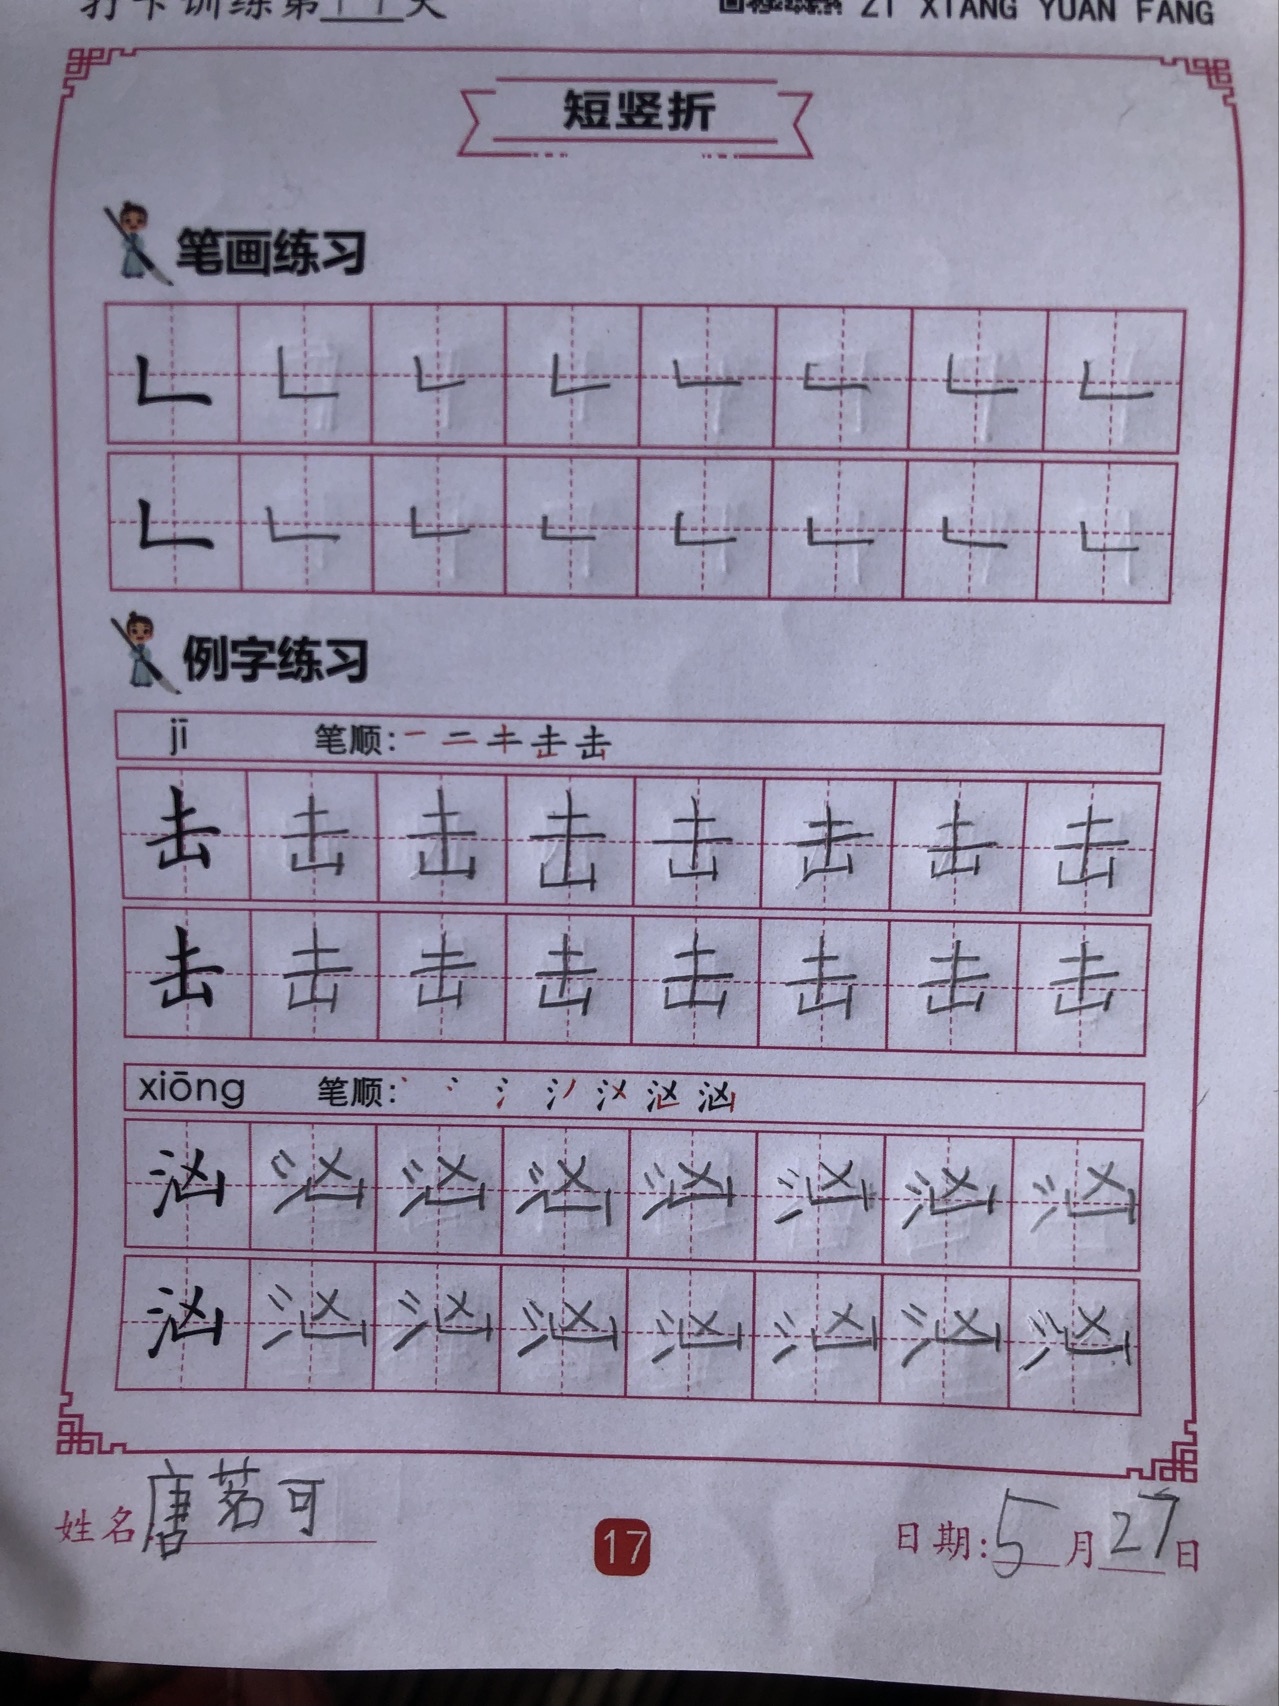 打卡训练第11天
ZI XIANG YUAN FANG
短竖折
笔画练习
𠃊 𠃊 𠃊 𠃊 𠃊 𠃊 𠃊 𠃊
𠃊 𠃊 𠃊 𠃊 𠃊 𠃊 𠃊 𠃊
例字练习
jī 笔顺: 击
击 击 击 击 击 击 击 击
击 击 击 击 击 击 击 击
xiōng 笔顺: 汹
汹 汹 汹 汹 汹 汹 汹 汹
汹 汹 汹 汹 汹 汹 汹 汹
姓名 唐茗可 17 日期: 5月27日